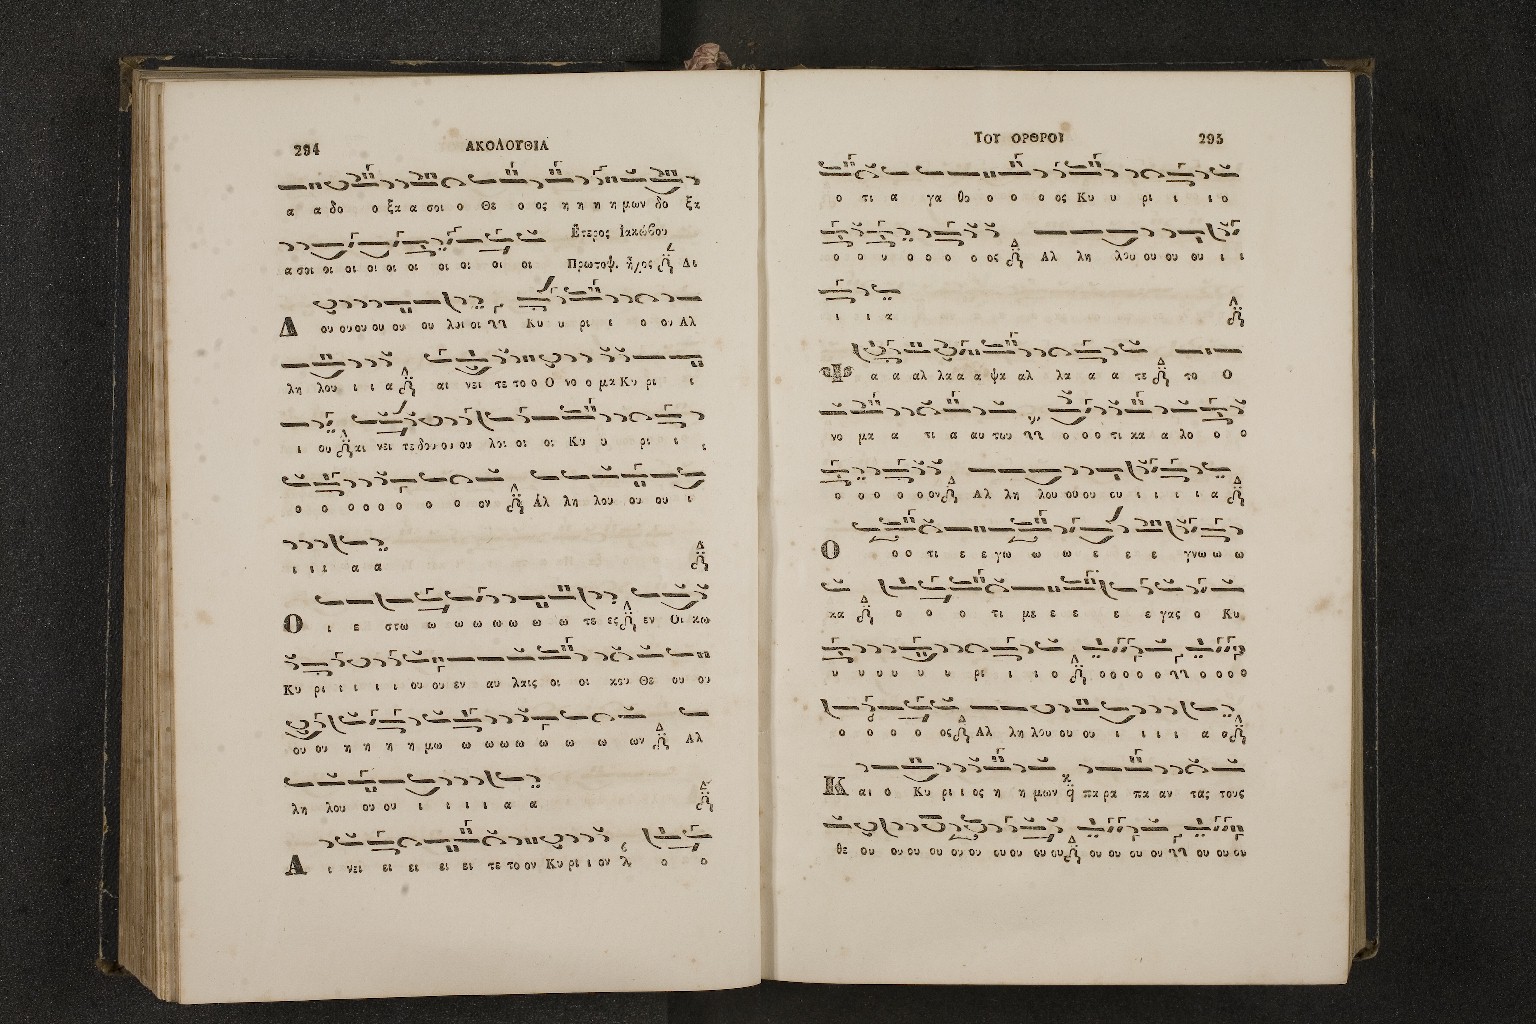 294 ΑΚΟΛΟΥΘΙΑ
α α δο ο ξα α σοι ο Θε ο ος η η η η μων δο ξα
Ἕτερος Ἰακώβου
α σοι οι οι οι οι οι οι οι οι οι οι Πρωτοψ. ἦχος Δι
Δ ου ου ου ου ου ου λοι οι Κυ υ ρι ι ο ου Αλ
λη λου ι ι α αι νει τε το ο Ο νο ο μα Κυ ρι ι
ι ου αι νει τε δου ου ου λοι οι οι Κυ υ ρι ι ι
ο ο ο ο ο ο ο ο ον Αλ λη λου ου ου ι
ι ι ι α α
Ο ι ε στω ω ω ω ω ω ω ω τε ες εν Οι κω
Κυ ρι ι ι ι ι ου ου εν αυ λαις οι οι κου Θε ου ου
ου ου η η η η μω ω ω ω ω ω ω ω ων Αλ
λη λου ου ου ι ι ι ι α α
Α ι νει ει ει ει ει τε το ον Κυ ρι ι ον ο ο
ΤΟΥ ΟΡΘΡΟΥ 295
ο τι α γα θο ο ο ο ος Κυ υ ρι ι ι ο
ο ο υ ο ο ο ο ος Αλ λη λου ου ου ου ι ι
ι ι α
Ψ α α αλ λα α α ψα αλ λα α α τε το Ο
νο μα α τι α αυ του ο ο ο τι κα α λο ο ο
ο ο ο ο ο ον Αλ λη λου ου ου ου ι ι ι ι α
Ο ο ο τι ε ε γω ω ω ε ε ε γνω ω ω
κα ο ο ο τι με ε ε ε ε γας ο Κυ
υ υ υ υ υ υ ρι ι ι ο ο ο ο ο ο ο ο ο ο
ο ο ο ο ος Αλ λη λου ου ου ι ι ι ι α α
Κ αι ο Κυ ρι ι ος η η μων πα ρα πα αν τας τους
θε ου ου ου ου ου ου ου ου ου ου ου ου ου ου ου ου ου